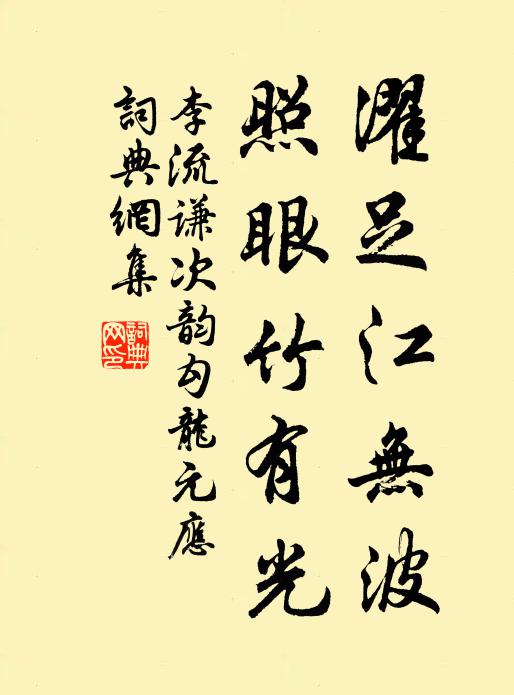 濯足江無波
照眼竹有光
李流謙次韵句龍元應
詞典網集
詞典網印